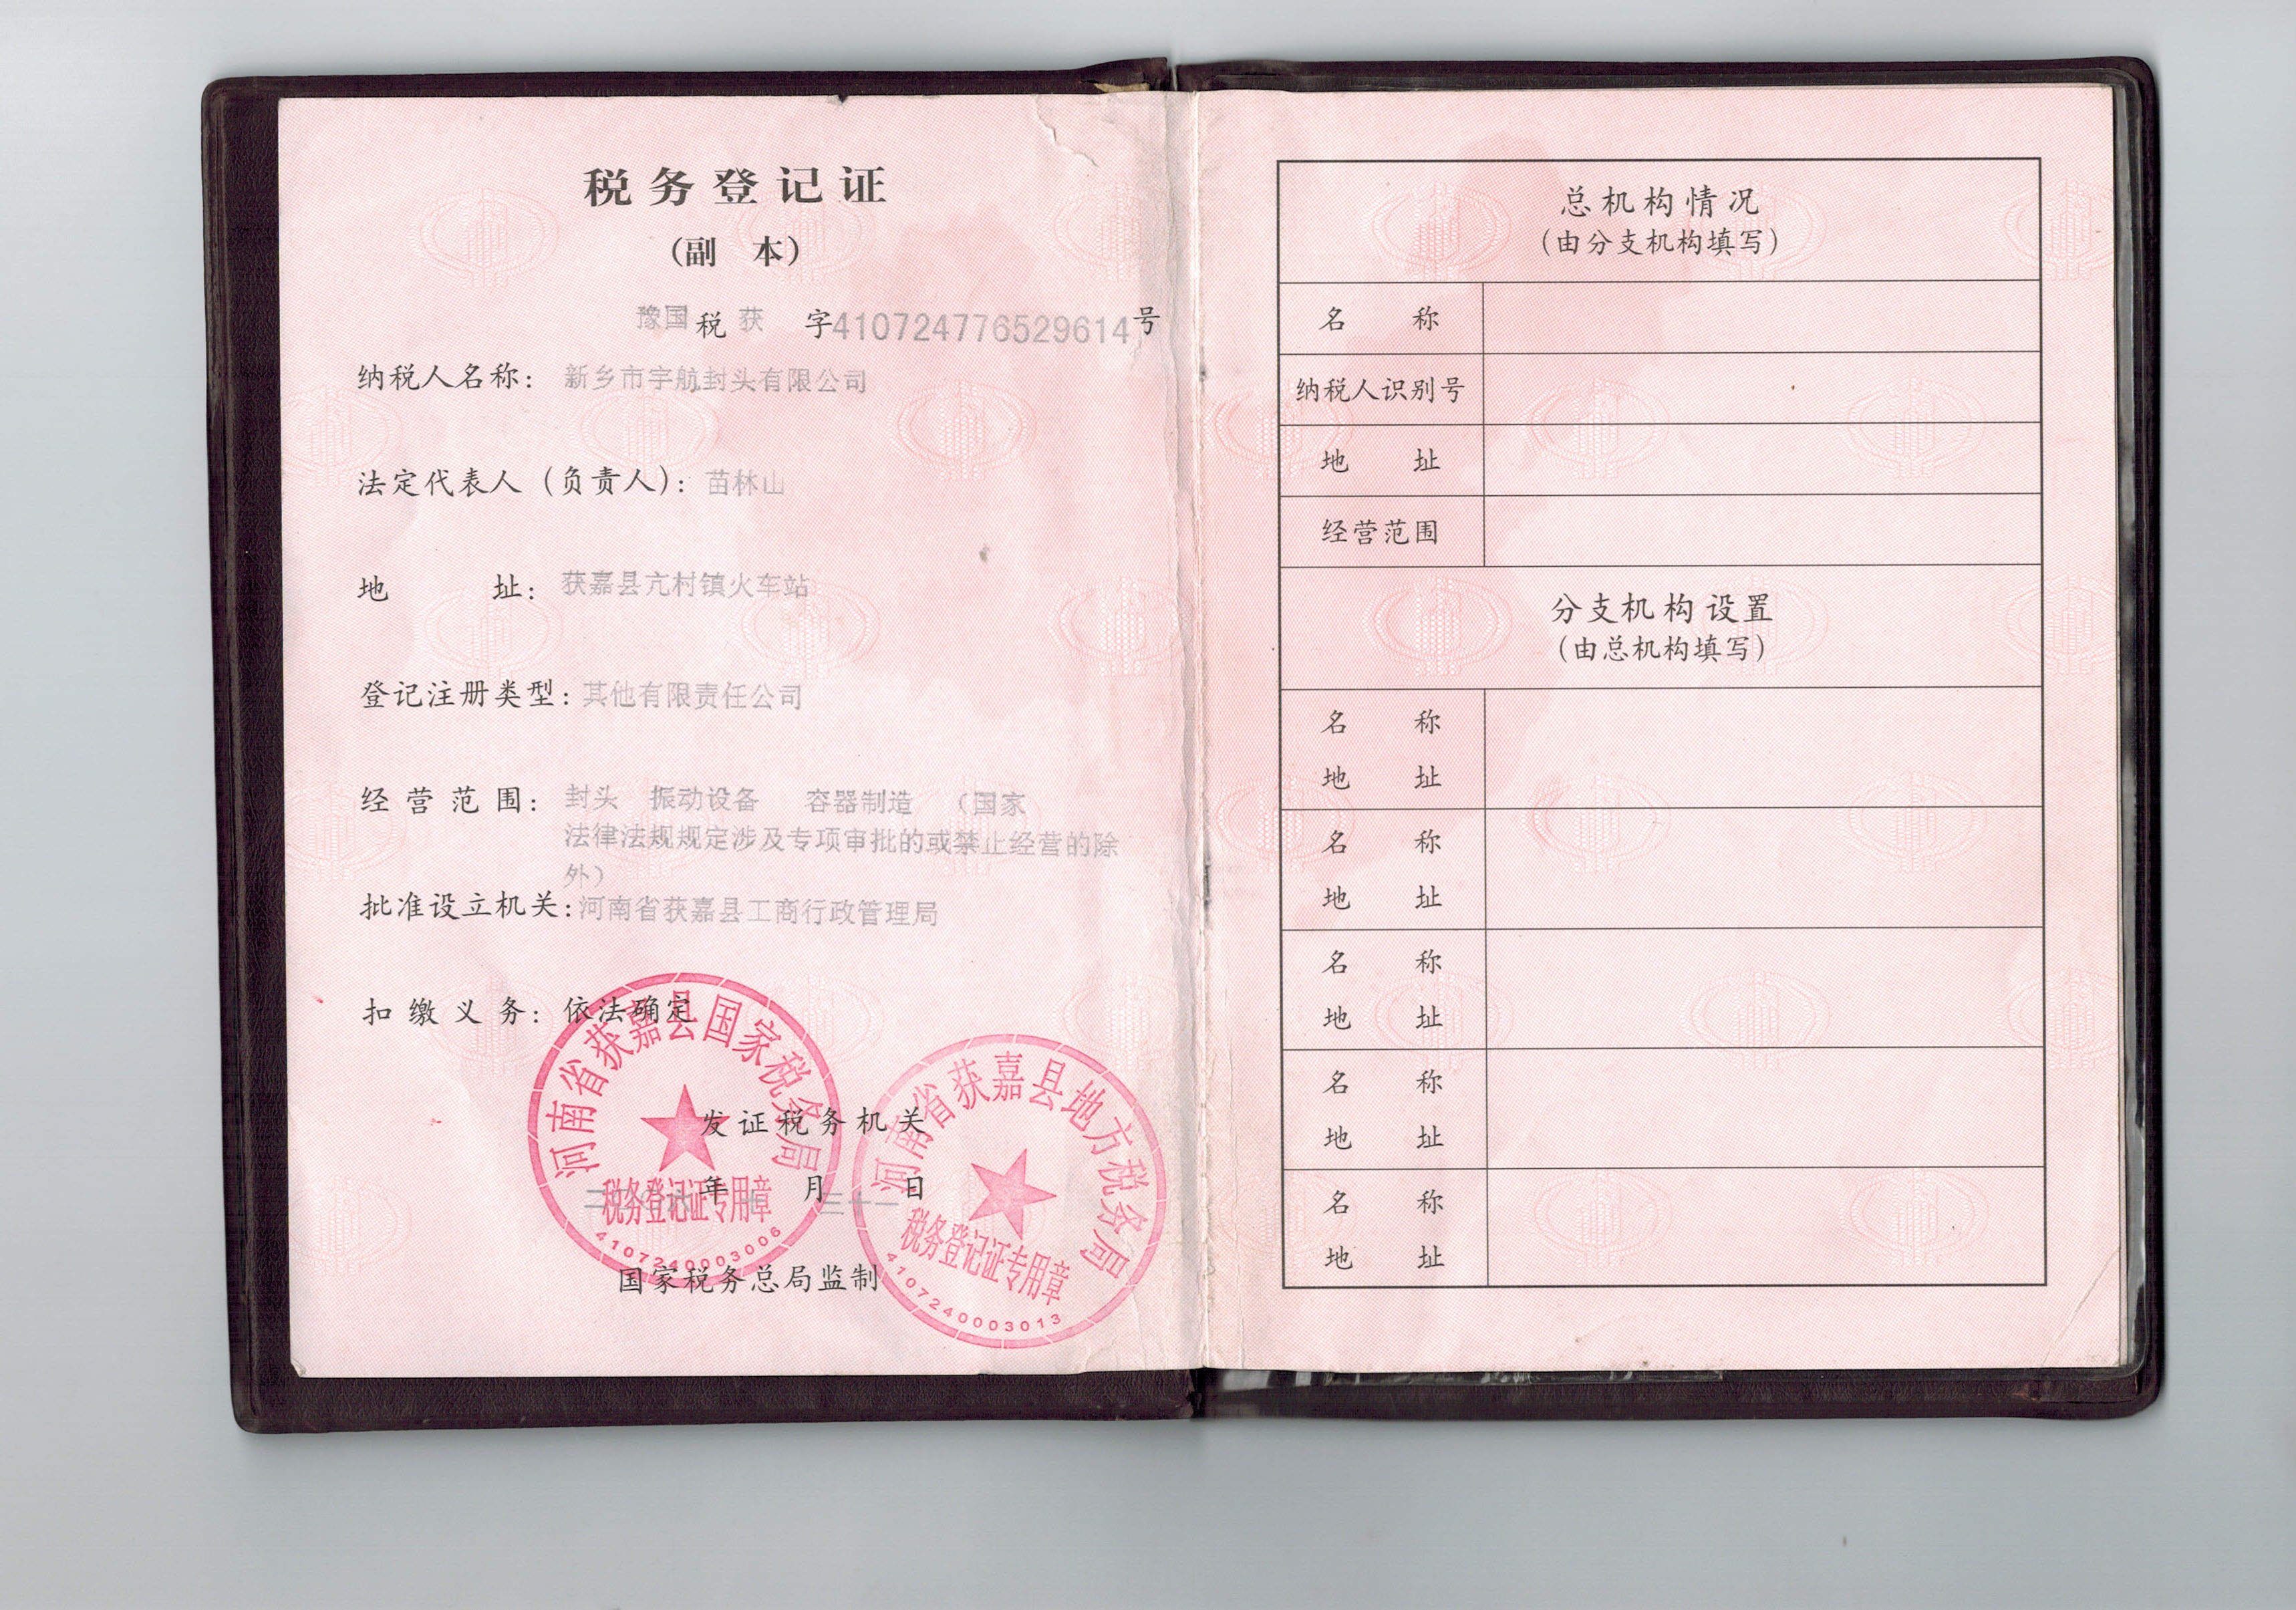 税务登记证
(副 本)
豫国 税 获 字410724776529614号
纳税人名称: 新乡市宇航封头有限公司
法定代表人(负责人): 苗林山
地 址: 获嘉县亢村镇火车站
登记注册类型: 其他有限责任公司
经营范围: 封头 振动设备 容器制造 (国家
法律法规规定涉及专项审批的或禁止经营的除
外)
批准设立机关: 河南省获嘉县工商行政管理局
扣缴义务: 依法确定
河南省获嘉县国家税务局
税务登记证专用章
4107240003006
河南省获嘉县地方税务局
税务登记证专用章
4107240003013
发证税务机关
年 月 三十一 日
国家税务总局监制
总机构情况
(由分支机构填写)
名 称
纳税人识别号
地 址
经营范围
分支机构设置
(由总机构填写)
名 称
地 址
名 称
地 址
名 称
地 址
名 称
地 址
名 称
地 址